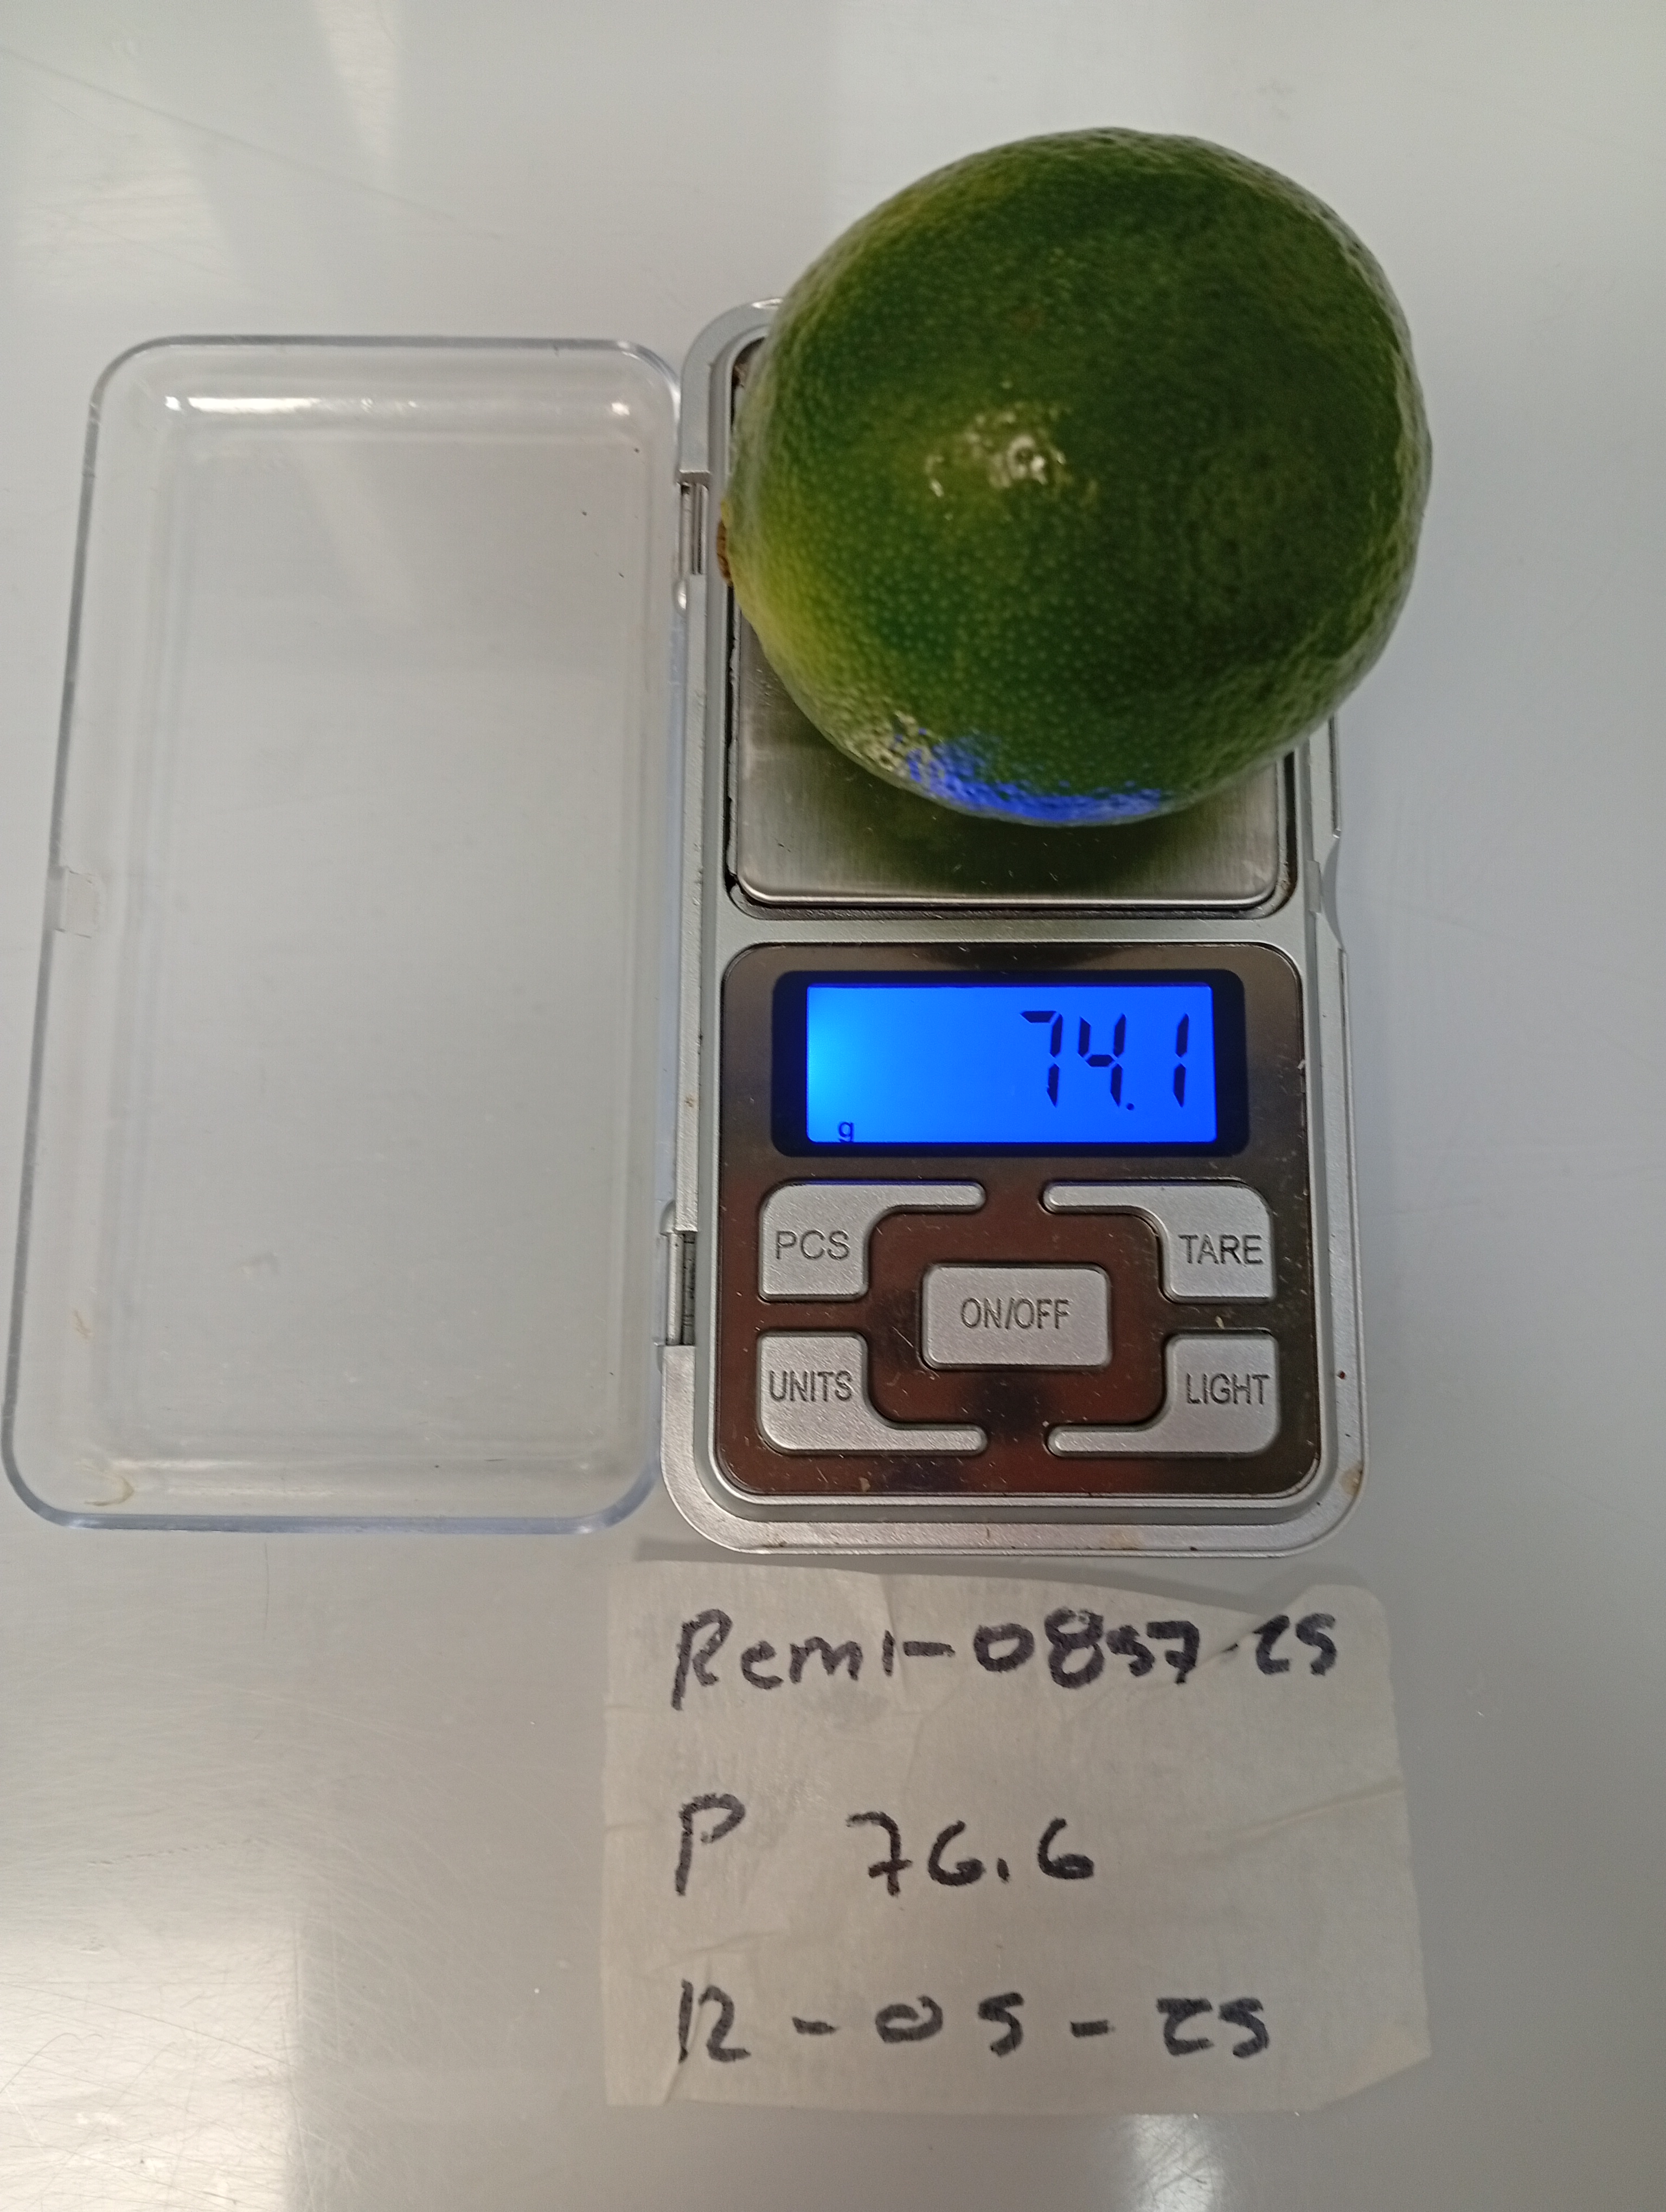 74.1
g
PCS
TARE
ON/OFF
UNITS
LIGHT
Remi-0857-25
P 76.6
12-05-25